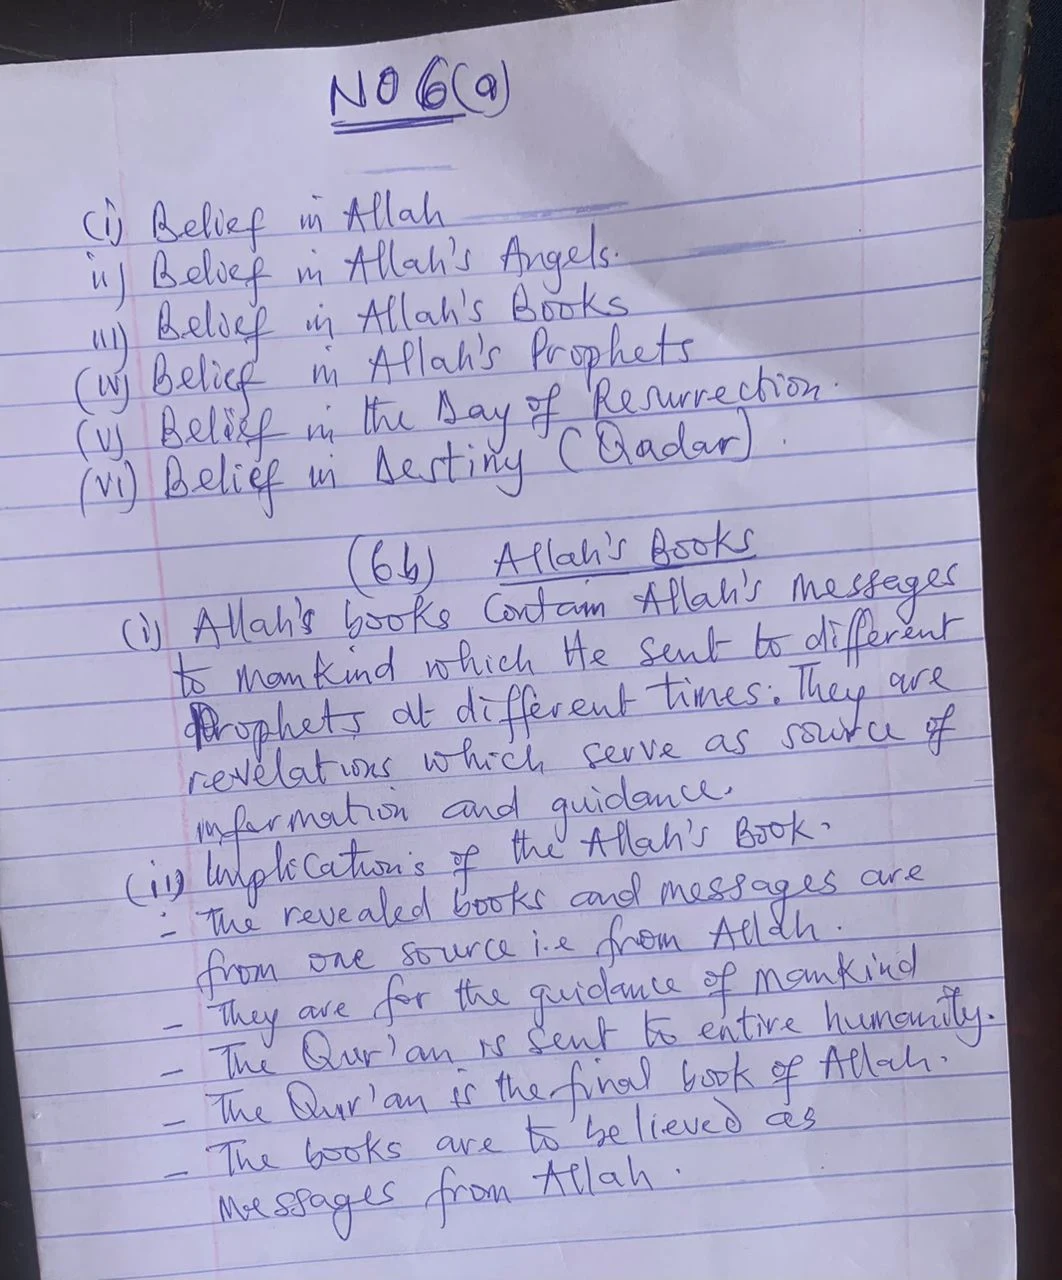 NO 6(a)
(i) Belief in Allah
ii) Belief in Allah's Angels.
iii) Belief in Allah's Books
(iv) Belief in Allah's Prophets
(v) Belief in the Day of Resurrection.
(vi) Belief in Destiny (Qadar).
(6b) Allah's Books
(i) Allah's books Contain Allah's messages
to mankind which He sent to different
Prophets at different times. They are
revelations which serve as source of
information and guidance.
(ii) Implication's of the Allah's Book.
- The revealed books and messages are
from one source i.e from Allah.
- They are for the guidance of mankind
- The Qur'an is sent to entire humanity.
- The Qur'an is the final book of Allah.
- The books are to believed as
Messages from Allah.